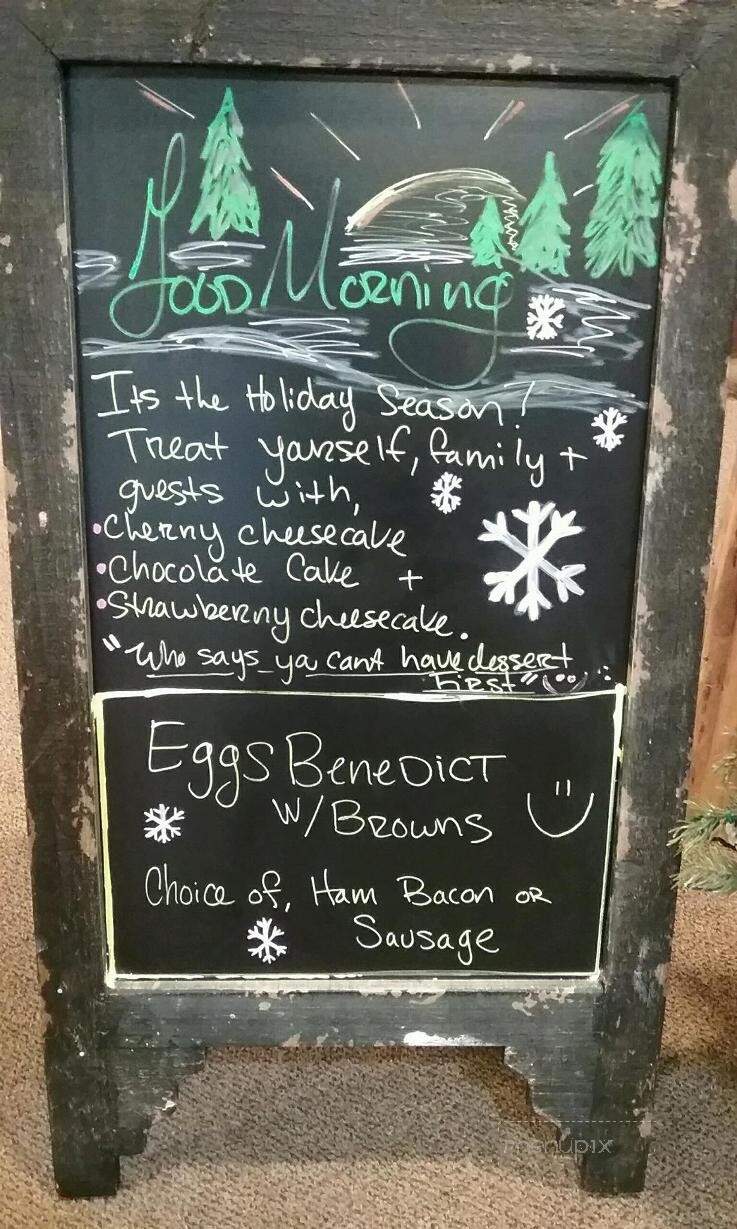 Good Morning
Its the Holiday Season!
Treat yourself, family +
guests with,
•Cherry cheesecake
•Chocolate Cake +
•Strawberry cheesecake.
"Who says ya cant have dessert
First"
Eggs Benedict
W/Browns
Choice of, Ham Bacon or
Sausage
menupix